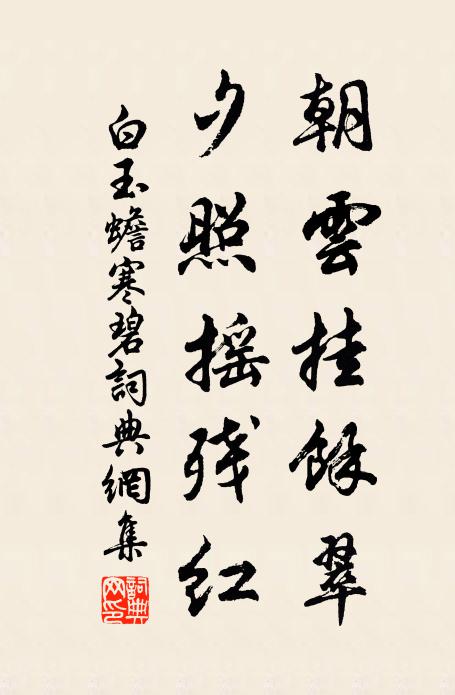 朝雲挂餘翠
夕照摇残红
白玉蟾寒碧詞典網集
詞典